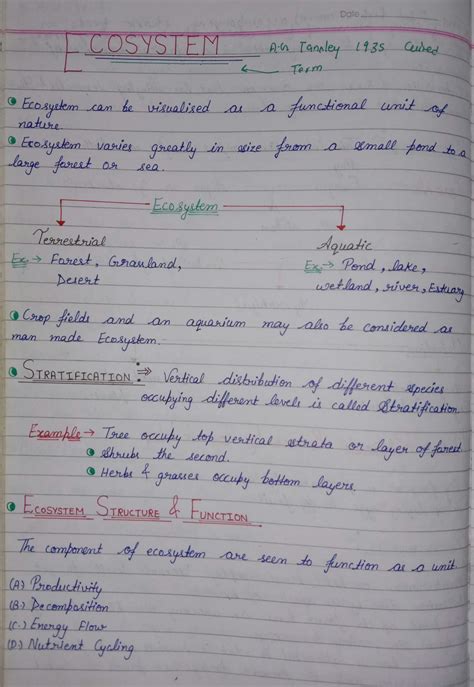 Date
ECOSYSTEM A.G Tansley 1935 Coined
← Term
Ecosystem can be visualised as a functional unit of
nature.
Ecosystem varies greatly in size from a small pond to a
large forest or sea.
Ecosystem
Terrestrial Aquatic
Ex → Forest, Grassland, Ex → Pond, lake,
Desert wetland, river, Estuary
Crop fields and an aquarium may also be considered as
man made Ecosystem.
STRATIFICATION :⇒ Vertical distribution of different species
occupying different levels is called Stratification.
Example → Tree occupy top vertical strata or layer of forest
Shrubs the second.
Herbs & grasses occupy bottom layers.
ECOSYSTEM STRUCTURE & FUNCTION
The component of ecosystem are seen to function as a unit
(A) Productivity
(B) Decomposition
(C) Energy Flow
(D) Nutrient Cycling